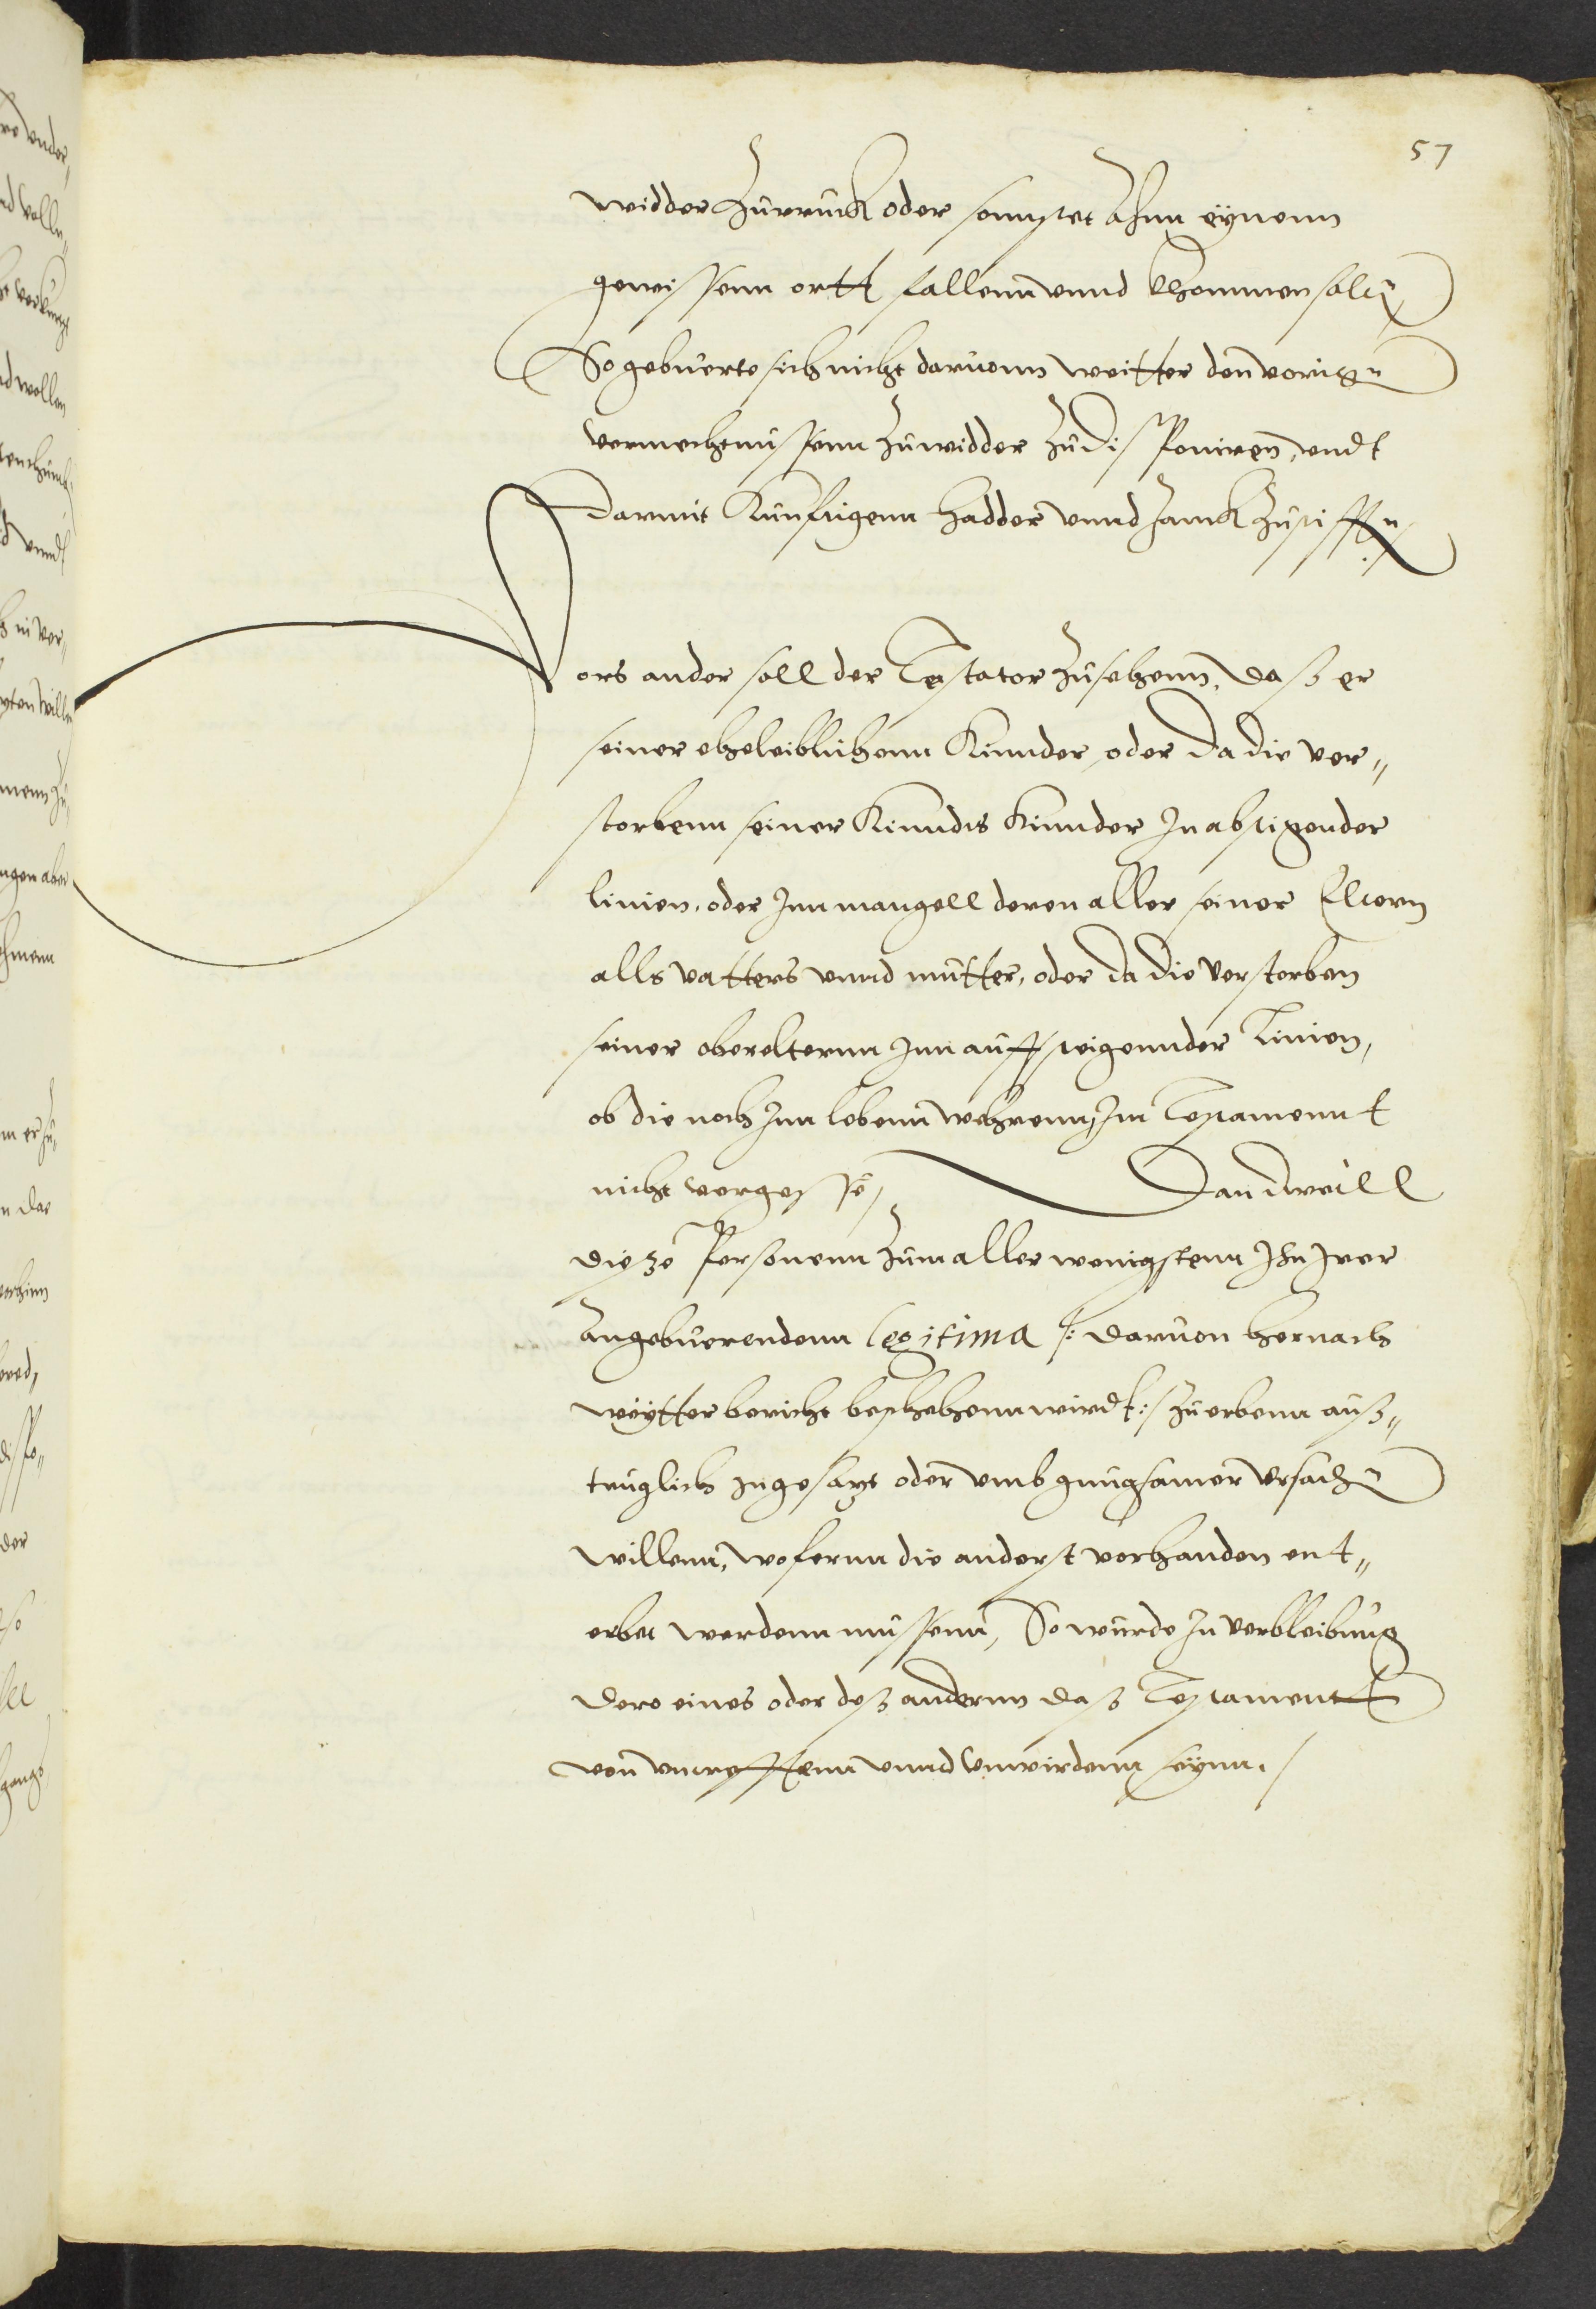 57
widder Zurruck oder sonnstet Ahnn eynenn
gewissenn ortt fallenn vnnd khommen soltt
So gebuerte sich nicht daruonn weitter den vorigen
vermechnussenn zuwidder zudisponiren, vndt
darmit Kunfftigenn hadder vnnd zannk zustifften
Vors ander soll der Testator zusehenn, daß er
seiner eheleiblichenn Kinnder, oder da die ver„
storbenn seiner Kinndts Kinnder In abstigender
linien, oder Inn mangell deren aller seiner Elternn
alls vatters vnnd mutter, oder da die verstorben
seiner oberelternn Inn auffsteigennder Linien,
ob die noch Inn lebenn wehrenn, Im Testamennt
nicht vergesse, Dan dweill
diesze Personenn zum aller wenigstenn Ihn Irer
Angebuerendenn legitima /: daruon hernach
weytter bericht beschehenn wirdt :/ zu erbenn auß„
truglich Ingesatzt oder vmb gnugsamer vrsachen
willenn, wofernn die anderst vorhanden ent„
erbet werdenn mussenn, So wurde In verbleibung
dero eines oder deß andernn daß Testamentt
von vncrefftenn vnnd vnwirdenn seynn./